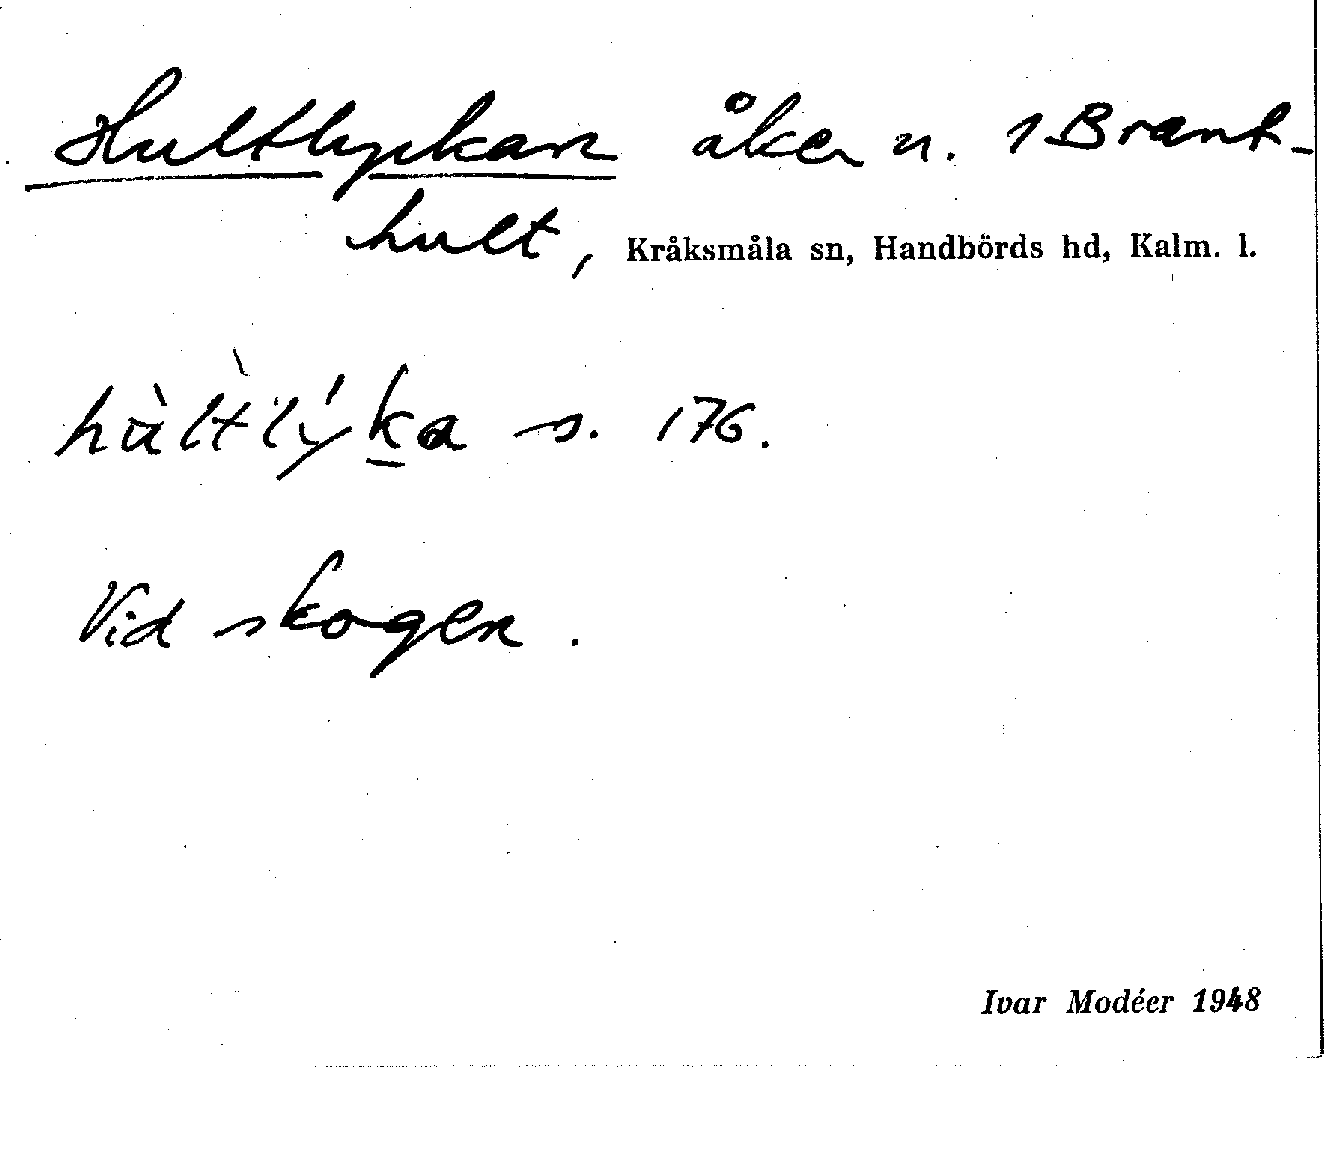 Hultlyckan åker n. 1 Brant-
hult, Kråksmåla sn, Handbörds hd, Kalm. l.
s. 176.
Vid skogen.
Ivar Modéer 1948